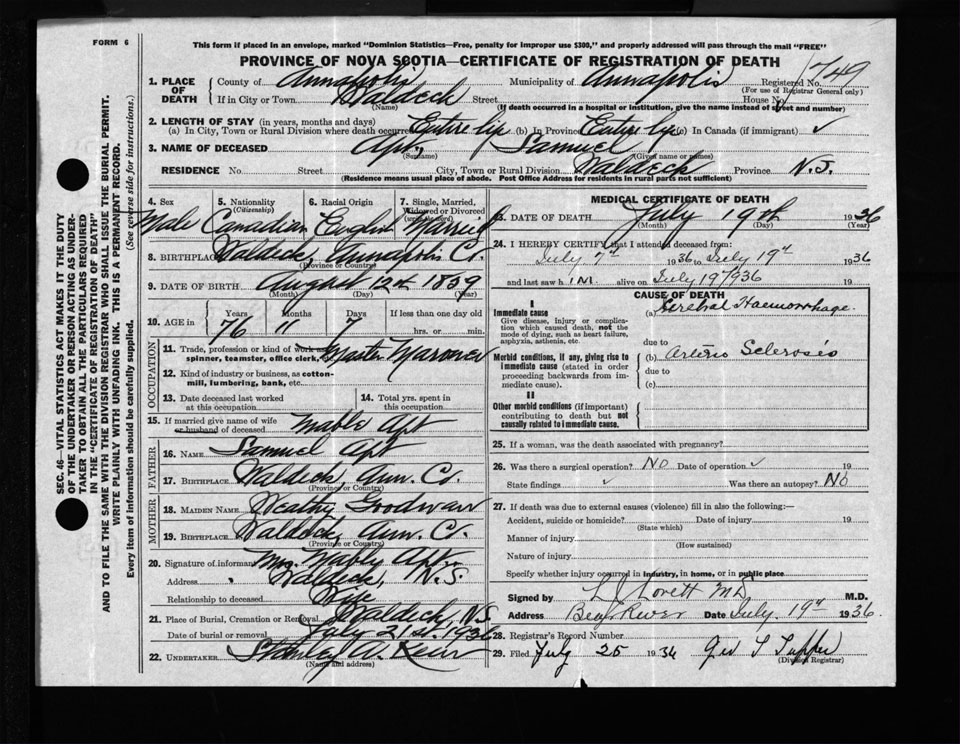 FORM 6
This form if placed in an envelope, marked "Dominion Statistics—Free, penalty for improper use $300," and properly addressed will pass through the mail "FREE"
PROVINCE OF NOVA SCOTIA—CERTIFICATE OF REGISTRATION OF DEATH
1. PLACE OF DEATH County of Annapolis Municipality of Annapolis Registered No. 1749
(For use of Registrar General only)
If in City or Town Waldeck Street House No.
(Name) (If death occurred in a hospital or institution, give the name instead of street and number)
2. LENGTH OF STAY (in years, months and days)
(a) In City, Town or Rural Division where death occurred Entire life (b) In Province Entire life (c) In Canada (if immigrant) ✓
3. NAME OF DECEASED Apt, Samuel
(Surname) (Given name or names)
RESIDENCE No. Street City, Town or Rural Division Waldeck Province N.S.
(Residence means usual place of abode. Post Office Address for residents in rural parts not sufficient)
4. Sex 5. Nationality (Citizenship) 6. Racial Origin 7. Single, Married, Widowed or Divorced
Male Canadian English Married
8. BIRTHPLACE Waldeck, Annapolis Co.
(Province or Country)
9. DATE OF BIRTH August 12th 1859
(Month) (Day) (Year)
10. AGE in Years Months Days If less than one day old
76 11 7 hrs. or min.
OCCUPATION
11. Trade, profession or kind of work as spinner, teamster, office clerk, Master Marooner
12. Kind of industry or business, as cotton-mill, lumbering, bank, etc.
13. Date deceased last worked at this occupation 14. Total yrs. spent in this occupation
15. If married give name of wife or husband of deceased Mable Apt
FATHER
16. NAME Samuel Apt
17. BIRTHPLACE Waldeck, Ann. Co.
(Province or Country)
MOTHER
18. MAIDEN NAME Goodwin
19. BIRTHPLACE Waldeck, Ann. Co.
(Province or Country)
20. Signature of informant Mrs. Mably Apt
Address Waldeck, N.S.
Relationship to deceased Wife
21. Place of Burial, Cremation or Removal Waldeck, N.S.
Date of burial or removal July 21st 1936
22. UNDERTAKER Stanley W.
(Name and address)
MEDICAL CERTIFICATE OF DEATH
23. DATE OF DEATH July 19th 1936
(Month) (Day) (Year)
24. I HEREBY CERTIFY that I attended deceased from:
July 7th 1936 to July 19th 1936
and last saw him alive on July 19 1936
CAUSE OF DEATH
I
Immediate cause (a) Cerebral Haemorrhage.
Give disease, injury or complication which caused death, not the mode of dying, such as heart failure, asphyxia, asthenia, etc.
due to
Morbid conditions, if any, giving rise to immediate cause (stated in order proceeding backwards from immediate cause). (b) Arterio Sclerosis
due to
(c)
II
Other morbid conditions (if important) contributing to death but not causally related to immediate cause.
25. If a woman, was the death associated with pregnancy?
26. Was there a surgical operation? No Date of operation ✓ 19
State findings ✓ Was there an autopsy? No
27. If death was due to external causes (violence) fill in also the following:—
Accident, suicide or homicide? Date of injury 19
(State which)
Manner of injury
(How sustained)
Nature of injury
Specify whether injury occurred in industry, in home, or in public place
Signed by L. J. Lovett MD M.D.
Address Bear River Date July. 19th 1936
28. Registrar's Record Number
29. Filed July 25 1936 Geo T Tupper
(Division Registrar)
SEC. 46—VITAL STATISTICS ACT MAKES IT THE DUTY
OF THE UNDERTAKER OR PERSON ACTING AS UNDER-
TAKER TO OBTAIN ALL THE PARTICULARS REQUIRED
IN THE "CERTIFICATE OF REGISTRATION OF DEATH"
AND TO FILE THE SAME WITH THE DIVISION REGISTRAR WHO SHALL ISSUE THE BURIAL PERMIT.
WRITE PLAINLY WITH UNFADING INK. THIS IS A PERMANENT RECORD.
Every item of information should be carefully supplied. (See reverse side for instructions.)